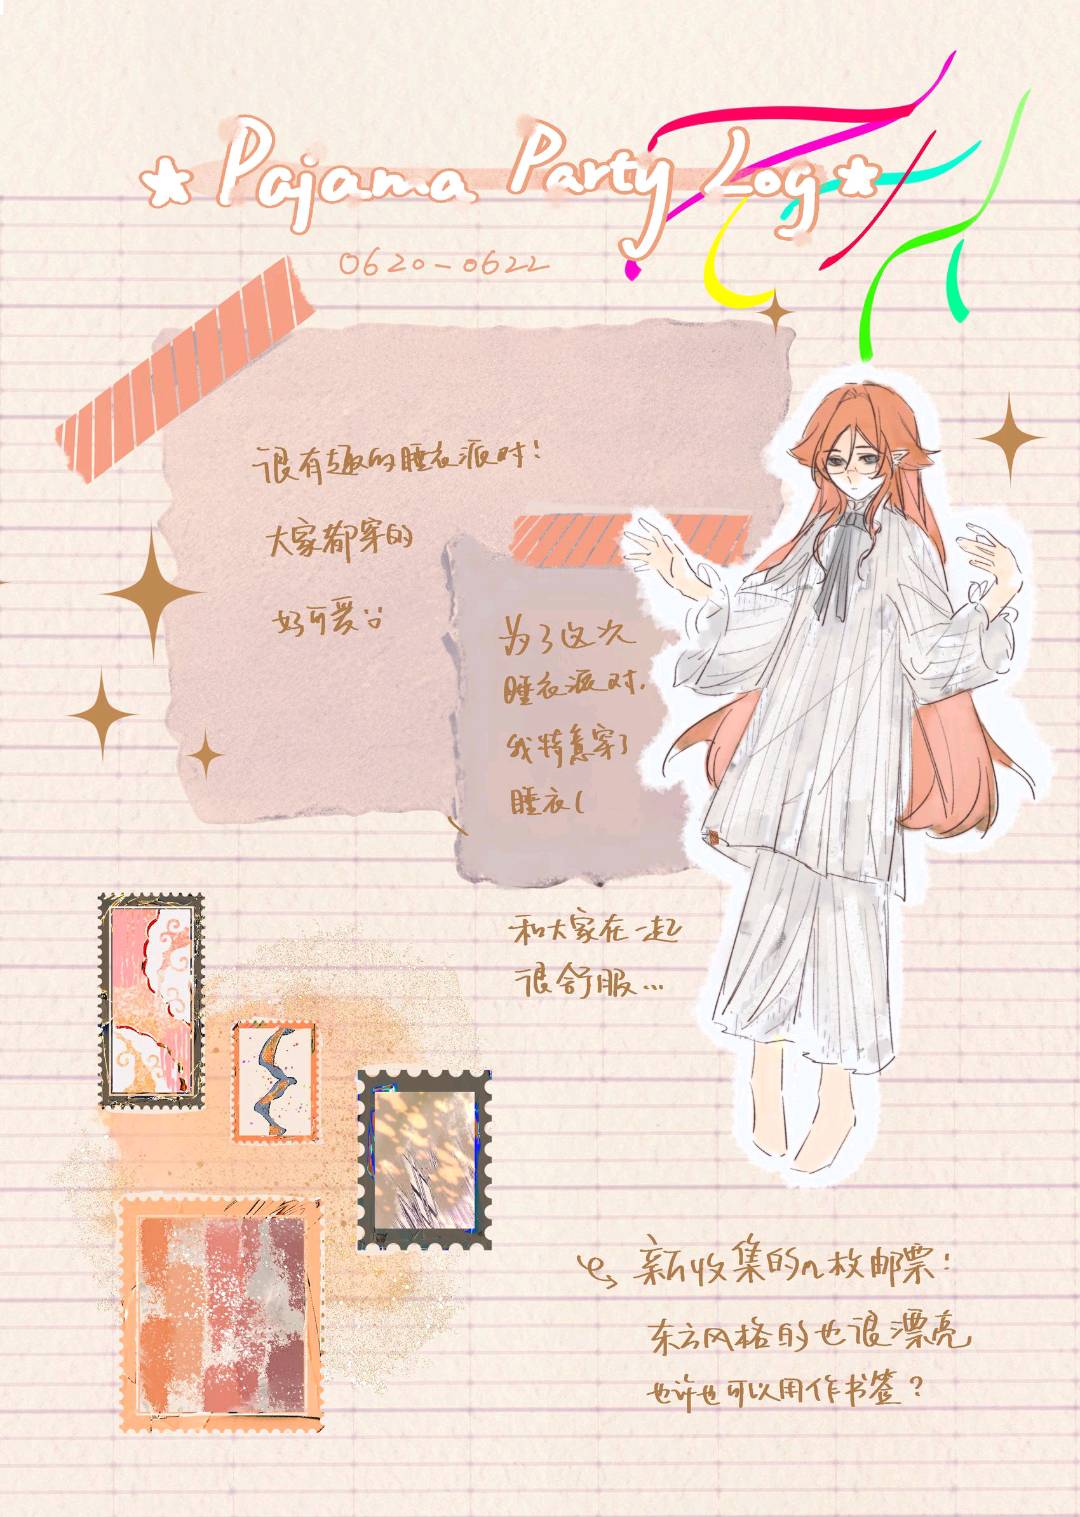 ★Pajama Party Log★
0620-0622
很有趣的睡衣派对!
大家都穿的
好可爱
为了这次
睡衣派对,
我特意穿了
睡衣(
和大家在一起
很舒服...
新收集的n枚邮票!
东方风格的也很漂亮
也许也可以用作书签?